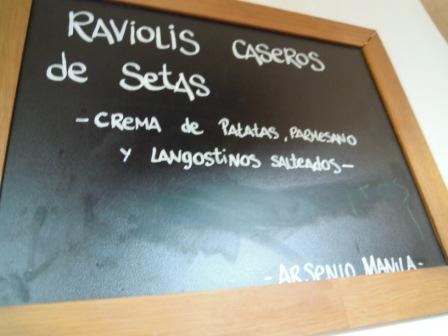 RAVIOLIS CASEROS
de SETAS
-CREMA de PATATAS, PARMESANO
Y LANGOSTINOS SALTEADOS-
-ARSENIO MANILA-